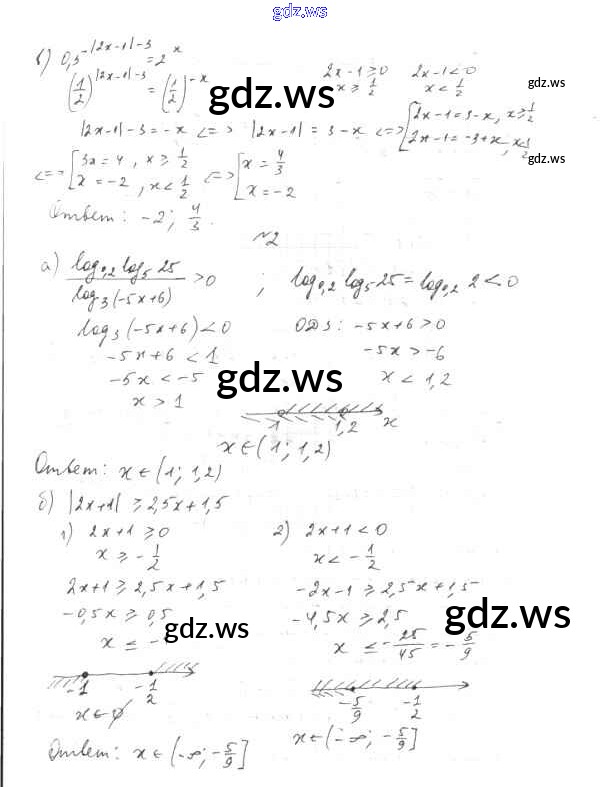 gdz.ws
в) 0,5^{-|2x-1|-3} = 2^x
(1/2)^{|2x-1|-3} = (1/2)^{-x}
2x-1≥0 2x-1<0
x ≥ 1/2 x < 1/2
gdz.ws
gdz.ws
|2x-1|-3 = -x <=> |2x-1| = 3-x <=> [2x-1=3-x, x≥1/2
2x-1=-3+x, x<1/2
gdz.ws
<=> [3x = 4, x ≥ 1/2
x = -2, x < 1/2
<=> [x = 4/3
x = -2
Ответ: -2; 4/3.
№2
а) log_{0,2} log_5 25 / log_3(-5x+6) > 0 ; log_{0,2} log_5 25 = log_{0,2} 2 < 0
log_3(-5x+6) < 0 ОДЗ: -5x+6 > 0
-5x+6 < 1 -5x > -6
-5x < -5 x < 1,2
x > 1
gdz.ws
1 1,2 x
x∈(1; 1,2)
Ответ: x∈(1; 1,2)
б) |2x+1| ≥ 2,5x+1,5
1) 2x+1 ≥ 0 2) 2x+1 < 0
x ≥ -1/2 x < -1/2
2x+1 ≥ 2,5x+1,5 -2x-1 ≥ 2,5x+1,5
-0,5x ≥ 0,5 -4,5x ≥ 2,5
x ≤ - x ≤ -25/45 = -5/9
gdz.ws
gdz.ws
-1 -1/2 -5/9 -1/2
x∈∅ x∈(-∞; -5/9]
Ответ: x∈(-∞; -5/9]